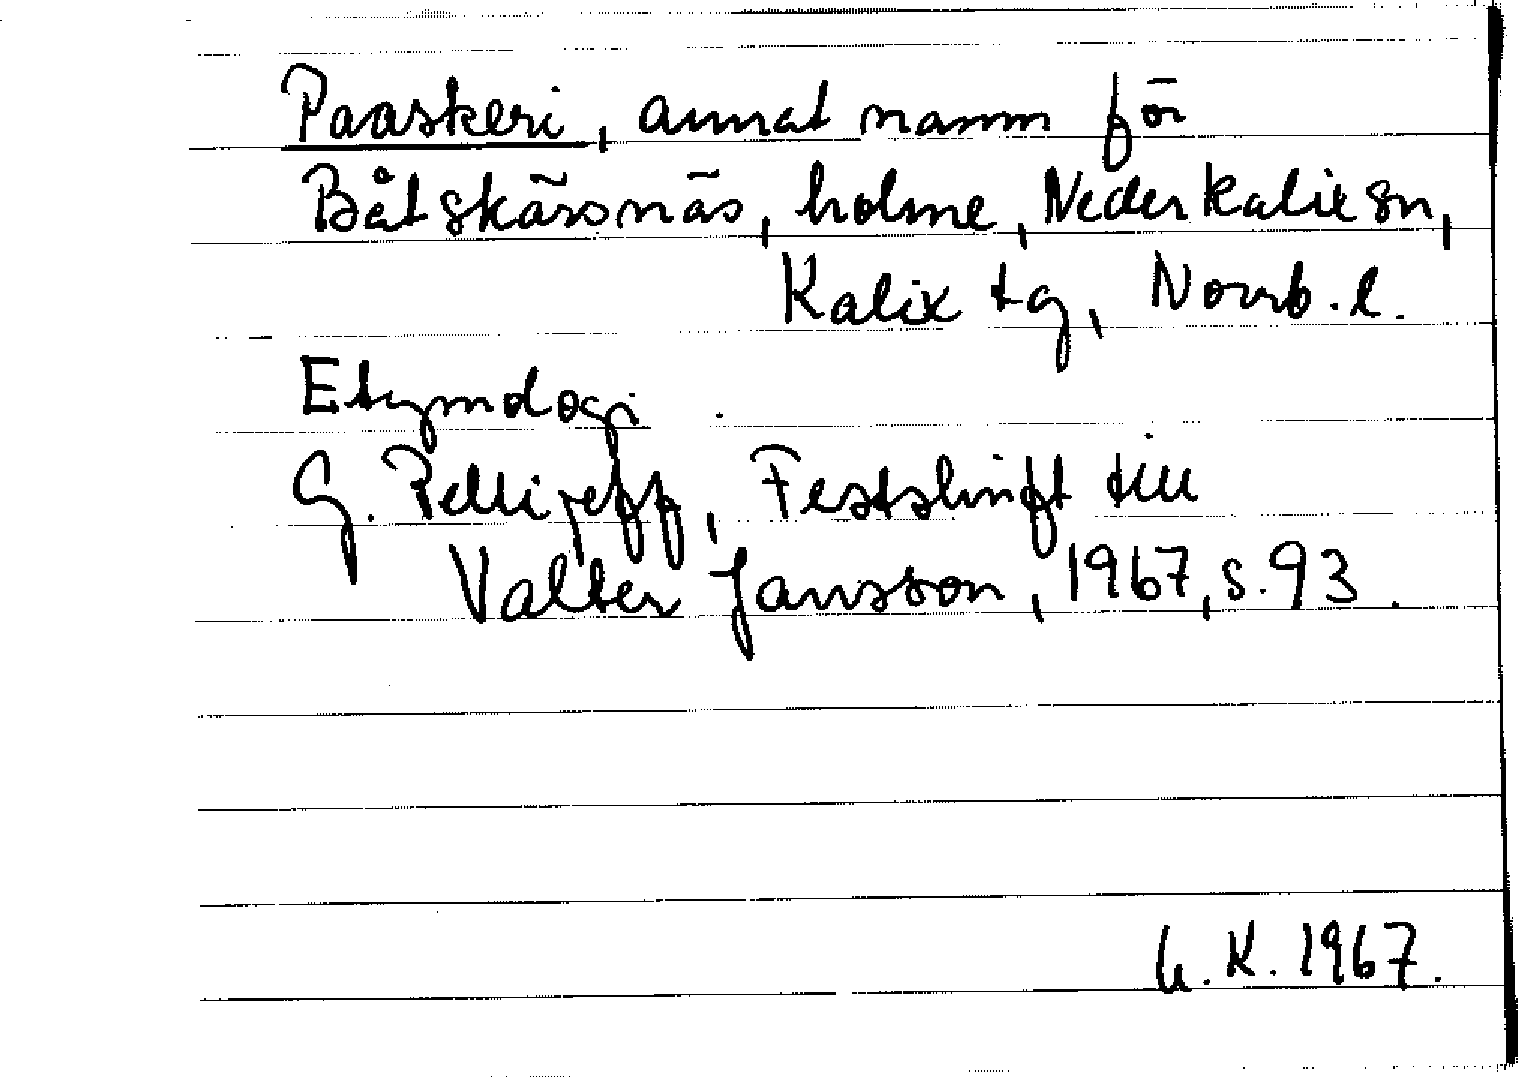 Paaskeri, annat namn för
Båtskärsnäs, holme, Nederkalix sn,
Kalix tg, Norrb. l.
Etymologi
G. Pellijeff, Festskrift till
Valter Jansson, 1967, s. 93.
K. 1967.